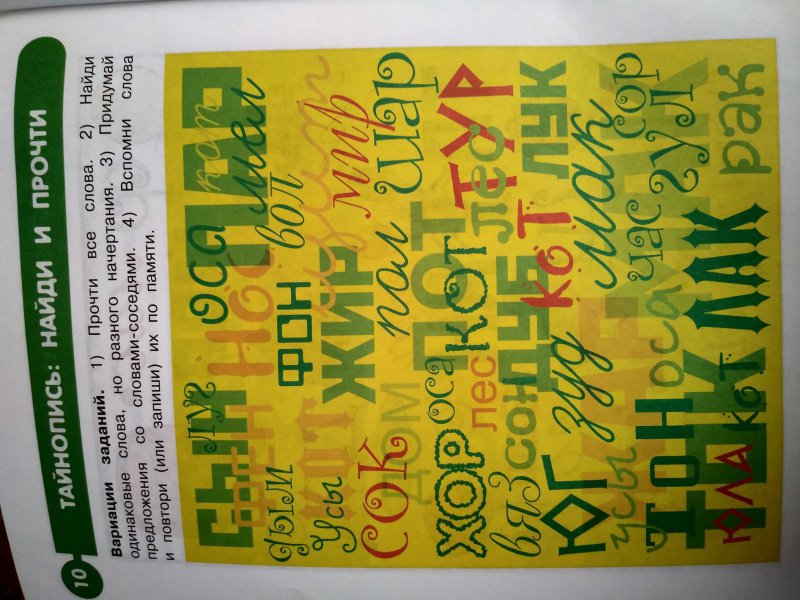 10
ТАЙНОПИСЬ: НАЙДИ И ПРОЧТИ
Вариации заданий. 1) Прочти все слова. 2) Найди
одинаковые слова, но разного начертания. 3) Придумай
предложения со словами-соседями. 4) Вспомни слова
и повтори (или запиши) их по памяти.
СЫН луг оса кот
ФЕН НОС мел
дым ФОН вол
Усы КОТ ЖИР мир
СОК ДОМ пал шар
ХОР оса КОТ ПОТ ТУР
лес лес
вяз СОН ДУБ КОТ ЛУК
ЮГ зуд мак
усы оса час сор
ТОН гул
ЮЛА кот ЛАК рак